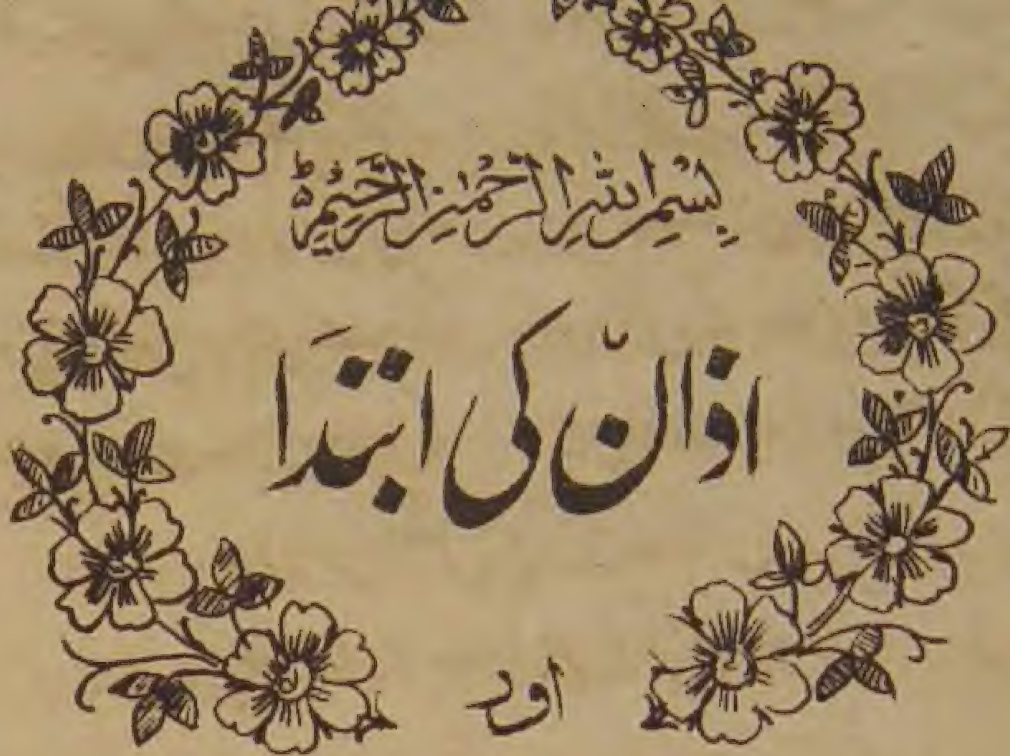 بِسْمِ اللّٰہِ الرَّحْمٰنِ الرَّحِیْمِ ؕ
اذان کی ابتدا
اور